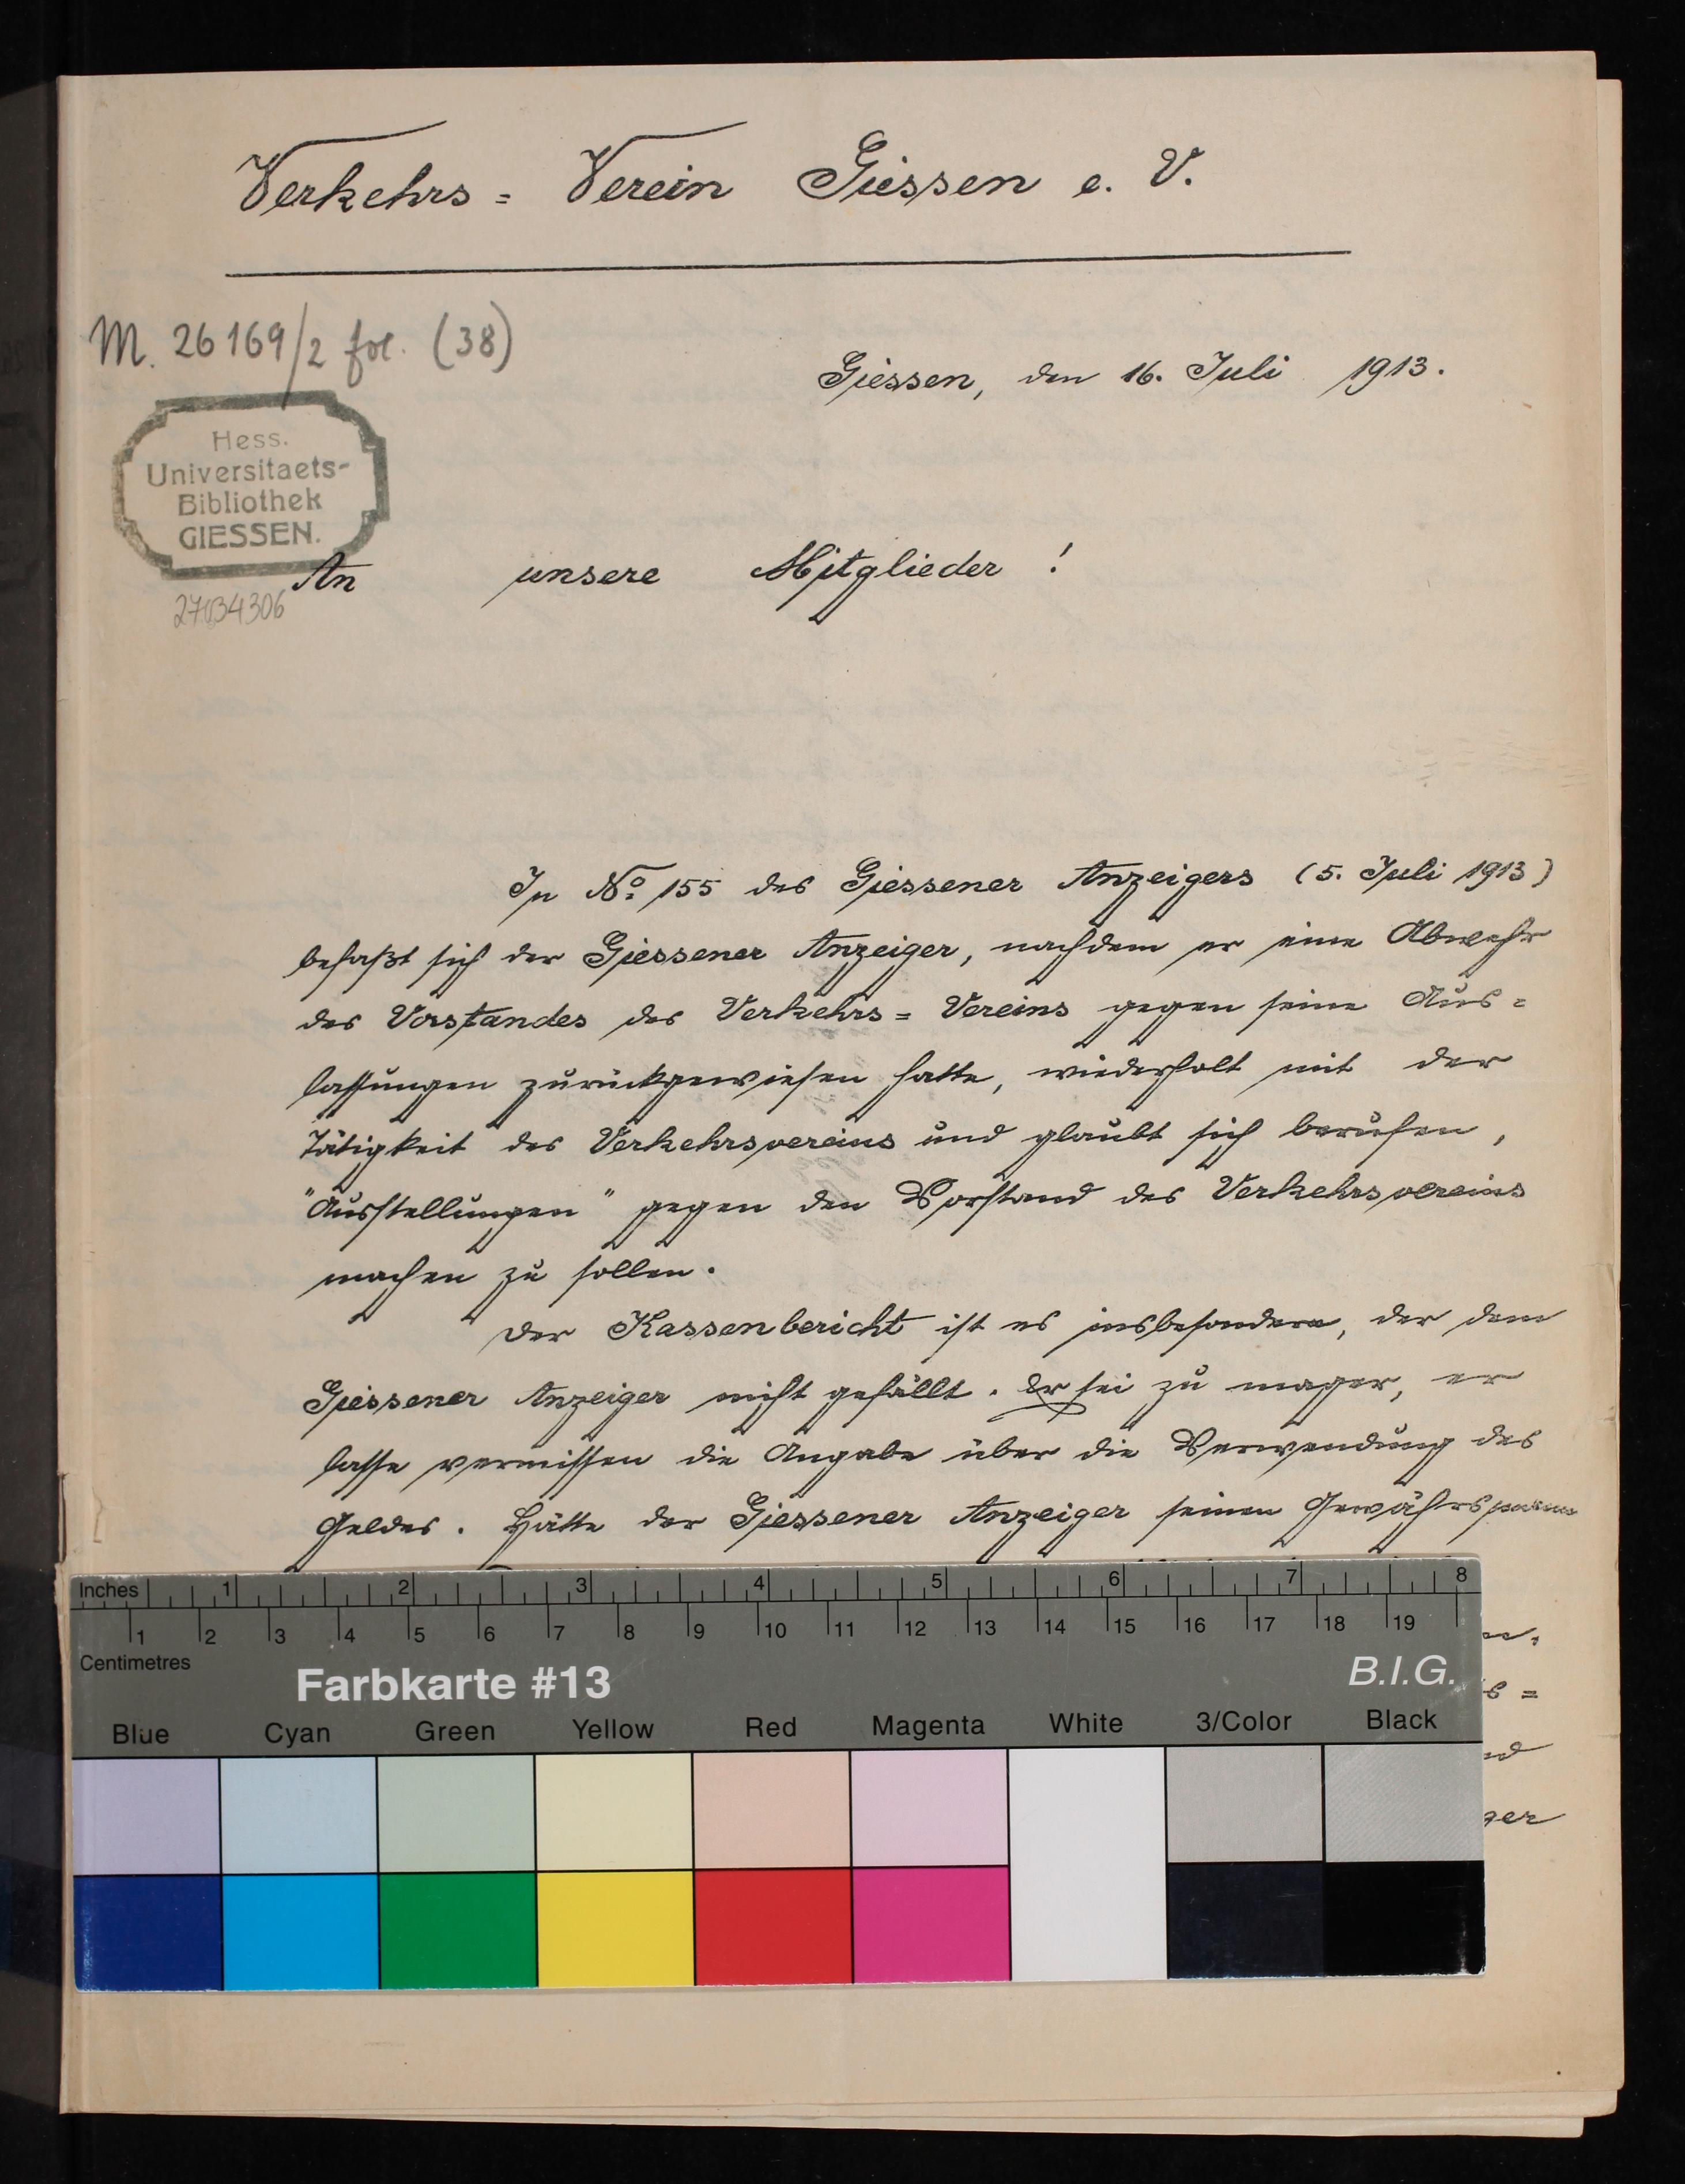 Verkehrs = Verein Giessen e. V.
M. 26169/2 fol. (38)
Giessen, den 16. Juli 1913.
Hess.
Universitaets-
Bibliothek
GIESSEN.
An unsere Mitglieder !
27034306
In No. 155 des Giessener Anzeigers (5. Juli 1913)
befaßt sich der Giessener Anzeiger, nachdem er eine Abwehr
des Vorstandes des Verkehrs = Vereins gegen seine Aus =
lassungen zurückgewiesen hatte, wiederholt mit der
Tätigkeit des Verkehrsvereins und glaubt sich berufen,
"Ausstellungen" gegen den Vorstand des Verkehrsvereins
machen zu sollen.
Der Kassenbericht ist es insbesondere, der dem
Giessener Anzeiger nicht gefällt. Er sei zu mager, er
lasse vermissen die Angabe über die Verwendung des
Geldes. Hätte der Giessener Anzeiger seinen
Inches 1 2 3 4 5 6 7 8
1 2 3 4 5 6 7 8 9 10 11 12 13 14 15 16 17 18 19
Centimetres
Farbkarte #13 B.I.G.
Blue Cyan Green Yellow Red Magenta White 3/Color Black